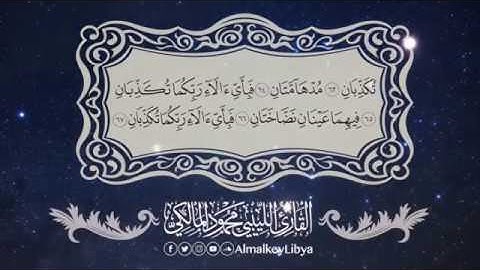 تُكَذِّبَانِ ٦٣ مُدْهَامَّتَانِ ٦٤ فَبِأَيِّ ءَالَآءِ رَبِّكُمَا تُكَذِّبَانِ
٦٥ فِيهِمَا عَيْنَانِ نَضَّاخَتَانِ ٦٦ فَبِأَيِّ ءَالَآءِ رَبِّكُمَا تُكَذِّبَانِ ٦٧
القارئ الليبي محمود المالكي
AlmalkeyLibya